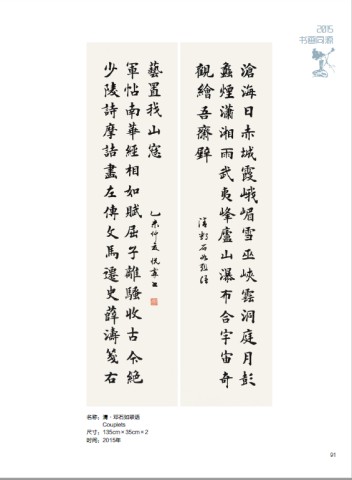 2015
书画同源
滄海日赤城霞峨嵋雪巫峽雲洞庭月彭
蠡煙瀟湘雨武夷峰廬山瀑布合宇宙奇
觀繪吾齋壁
清鄧石如題語
少陵詩摩詰畫左傳文馬遷史薛濤箋右
軍帖南華經相如賦屈子離騷收古今絕
藝置我山窓
乙未仲夏
名称：清·邓石如草语
Couplets
尺寸：135cm×35cm×2
时间：2015年
91